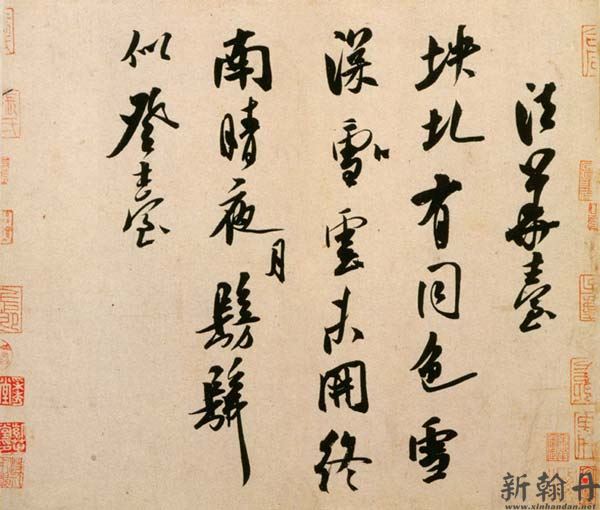 法華臺
坱圠有同色雪
深雪雲未開終
南晴夜月髣髴
似登臺
新翰丹
www.xinhandan.net